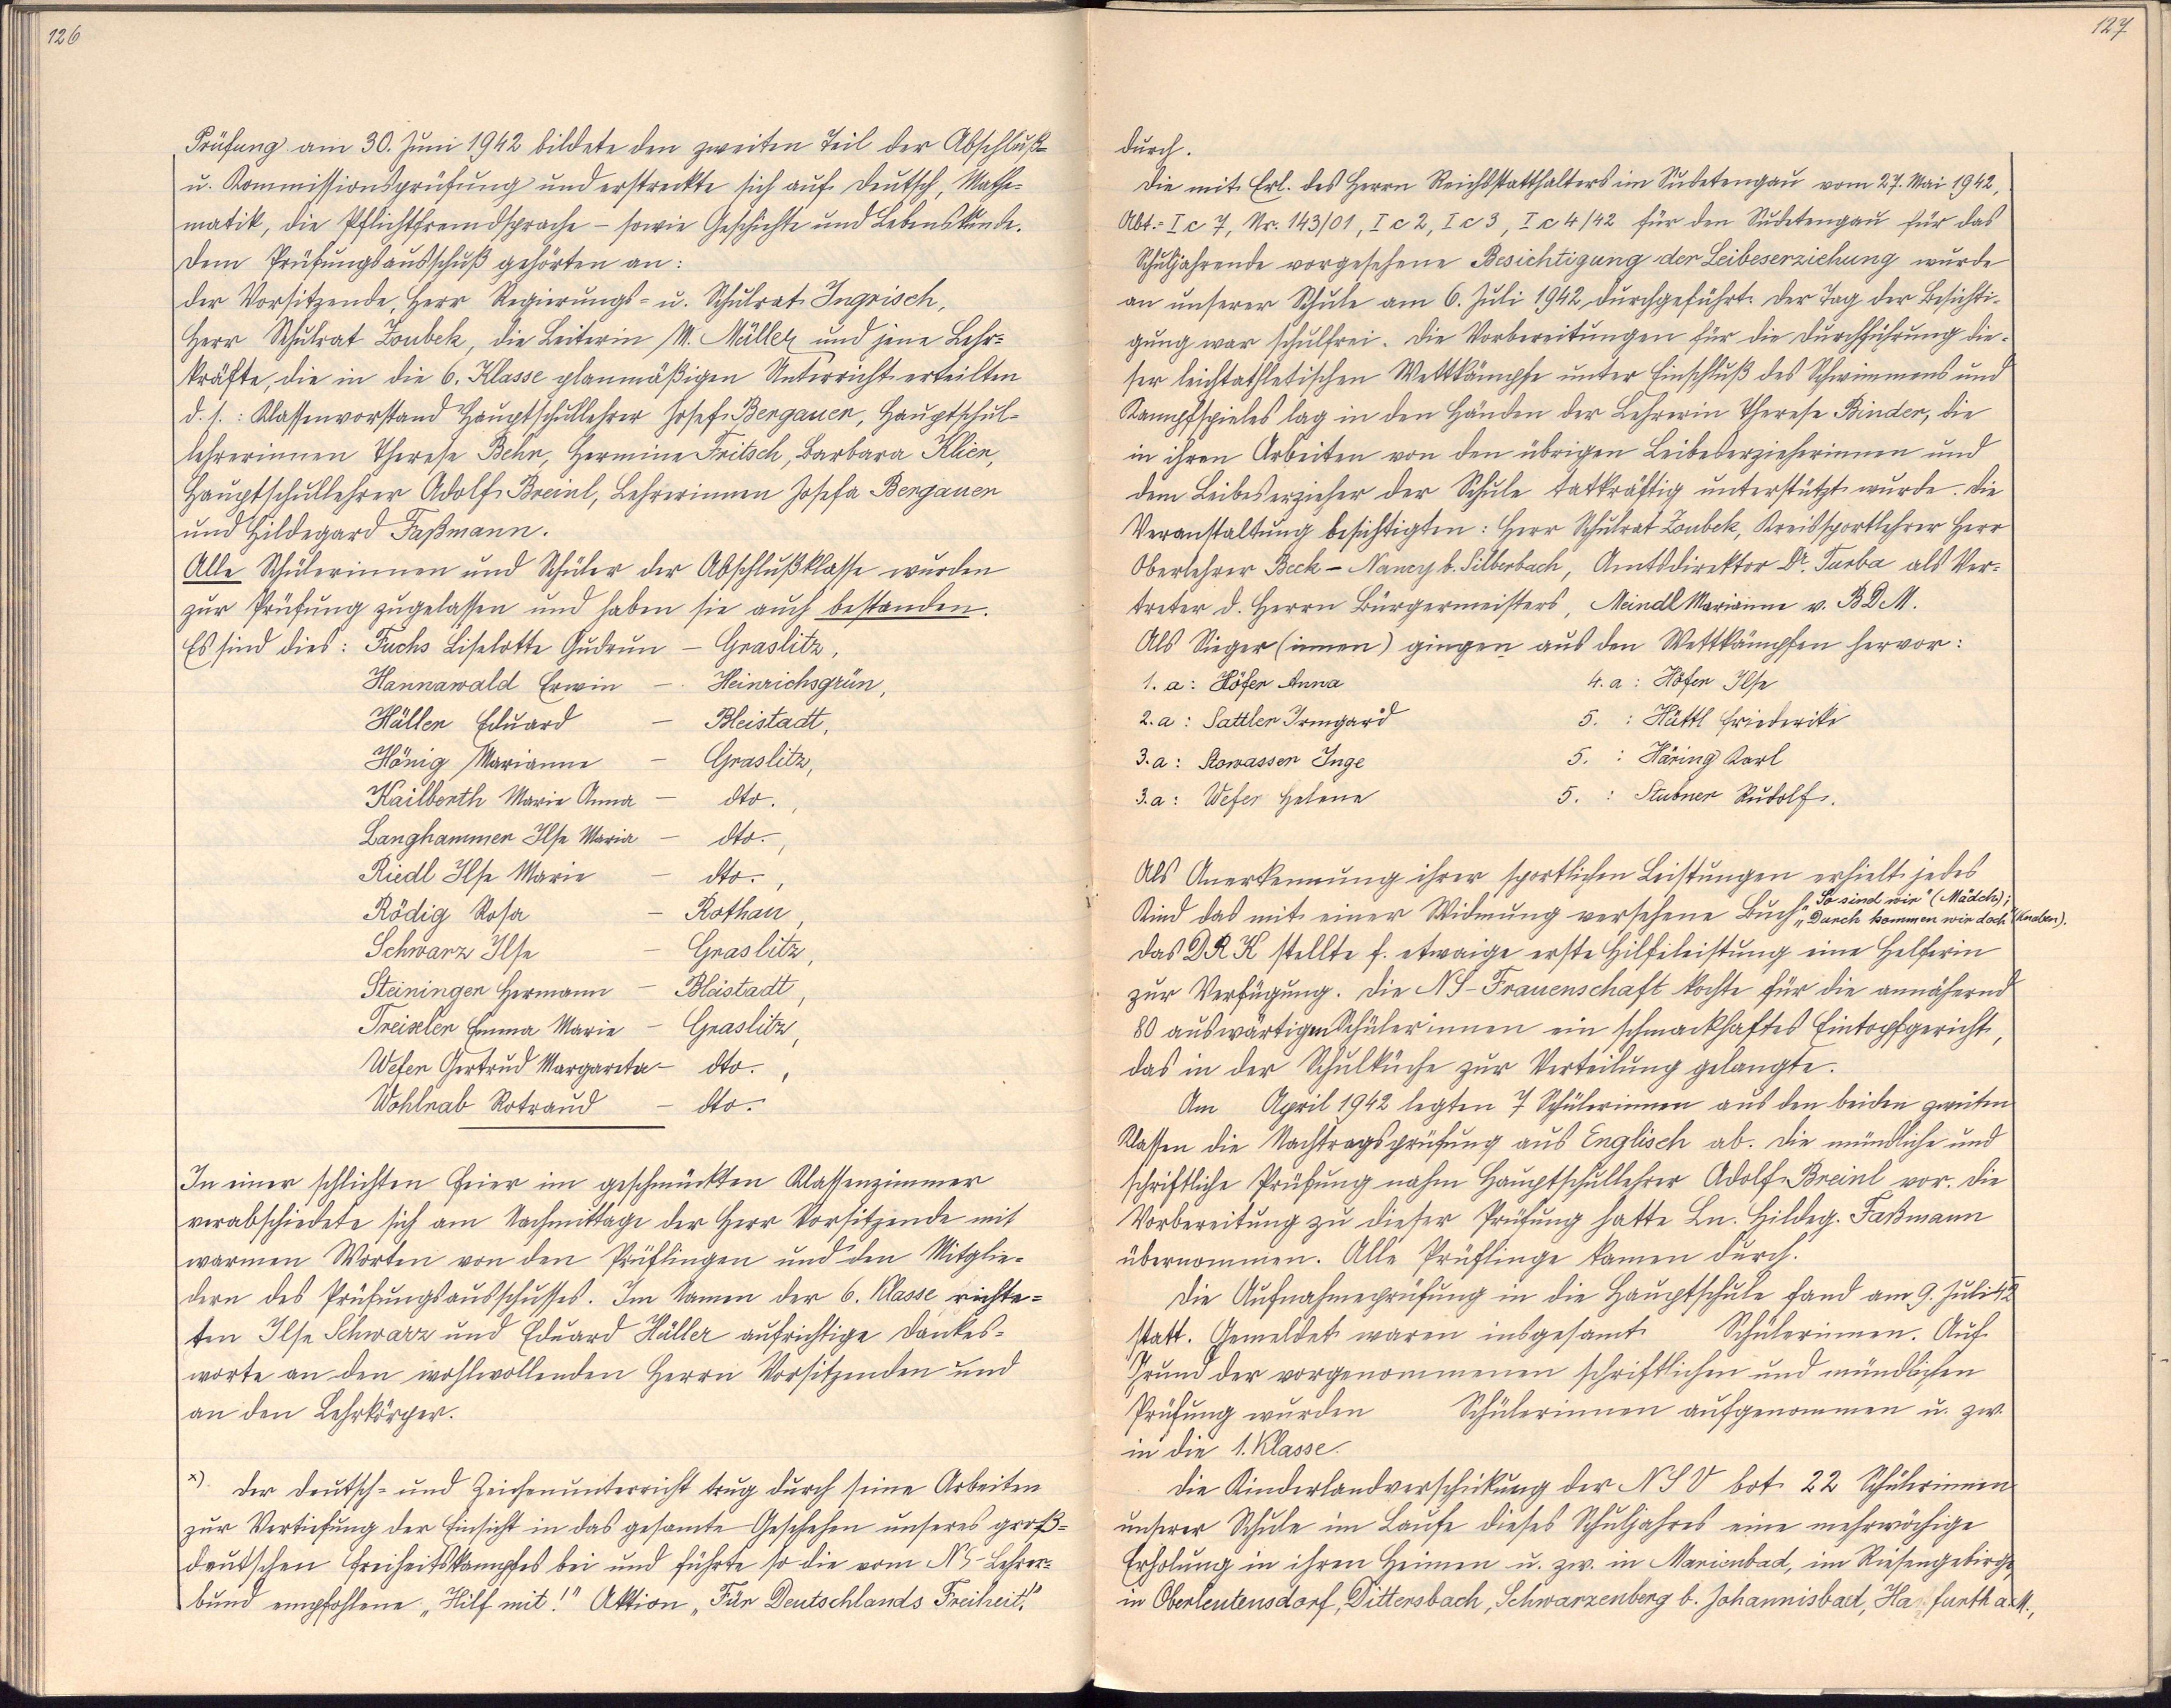 126
Prüfung am 30. Juni 1942 bildete den zweiten Teil der Abschluß-
u. Kommissionsprüfung und erstreckte sich auf Deutsch, Mathe-
matik, die Pflichtfremdsprache – sowie Geschichte und Lebenskunde.
Dem Prüfungsausschuß gehörten an:
der Vorsitzende, Herr Regierungs- u. Schulrat Ingrisch,
Herr Schulrat Zoubek, die Leiterin M. Müller und jene Lehr-
kräfte, die in die 6. Klasse planmäßigen Unterricht erteilten
d. s.: Klassenvorstand Hauptschullehrer Josef Bergauer, Hauptschul-
lehrerinnen Therese Behr, Hermine Fritsch, Barbara Klier,
Hauptschullehrer Adolf Breinl, Lehrerinnen Josefa Bergauer
und Hildegard Faßmann.
Alle Schülerinnen und Schüler der Abschlußklasse wurden
zur Prüfung zugelassen und haben sie auch bestanden.
Es sind dies: Fuchs Liselotte Gudrun – Graslitz,
Hannawald Erwin – Heinrichsgrün,
Häller Eduard – Bleistadt,
Hönig Marianne – Graslitz,
Kailberth Marie Anna – dto.,
Langhammer Ilse Maria – dto.,
Riedl Ilse Marie – dto.,
Rödig Rosa – Rothau,
Schwarz Ilse – Graslitz,
Steininger Hermann – Bleistadt,
Treiseler Emma Marie – Graslitz,
Wefer Gertrud Margareta – dto.,
Wohlrab Rotraud – dto.
In einer schlichten Feier im geschmückten Klassenzimmer
verabschiedete sich am Nachmittage der Herr Vorsitzende mit
warmen Worten von den Prüflingen und den Mitglie-
dern des Prüfungsausschusses. Im Namen der 6. Klasse richte-
ten Ilse Schwarz und Eduard Häller aufrichtige Dankes-
worte an den wohlwollenden Herrn Vorsitzenden und
an den Lehrkörper.
x) Der Deutsch- und Zeichenunterricht trug durch seine Arbeiten
zur Vertiefung der Einsicht in das gesamte Geschehen unseres groß-
deutschen Freiheitskampfes bei und führte so die vom NS-Lehrer-
bund empfohlene „Hilf mit!" Aktion „Für Deutschlands Freiheit."
127
durch.
Die mit Erl. des Herrn Reichsstatthalters im Sudetengau vom 27. Mai 1942,
Abt.: I c 7, Nr. 143/01, I c 2, I c 3, I c 4/42 für den Sudetengau für das
Schuljahrende vorgesehene Besichtigung der Leibeserziehung wurde
an unserer Schule am 6. Juli 1942 durchgeführt. Der Tag der Besichti-
gung war schulfrei. Die Vorbereitungen für die Durchführung die-
ser leichtathletischen Wettkämpfe unter Einschluß des Schwimmens und
Kampfspieles lag in den Händen der Lehrerin Therese Binder, die
in ihren Arbeiten von den übrigen Leibeserzieherinnen und
dem Leibeserzieher der Schule tatkräftig unterstützt wurde. Die
Veranstaltung besichtigten: Herr Schulrat Zoubek, Kreissportlehrer Herr
Oberlehrer Beck – Nancy b. Silberbach, Amtsdirektor Dr. Turba als Ver-
treter d. Herrn Bürgermeisters, Meindl Marianne v. BDM.
Als Sieger (innen) gingen aus den Wettkämpfen hervor:
1. a: Höfer Anna 4. a: Höfer Ilse
2. a: Sattler Irmgard 5. : Hüttl Friederike
3. a: Stowasser Inge 5. : Häring Karl
3. a: Wefer Helene 5. : Stubner Rudolf.
Als Anerkennung ihrer sportlichen Leistungen erhielt jedes
Kind das mit einer Widmung versehene Buch „So sind wir" (Mädch);
„Durch kommen wir doch" (Knaben).
Das DRK stellte f. etwaige erste Hilfeleistung eine Helferin
zur Verfügung. Die NS-Frauenschaft kochte für die annähernd
80 auswärtigen Schülerinnen ein schmackhaftes Eintopfgericht,
das in der Schulküche zur Verteilung gelangte.
Am April 1942 legten 7 Schülerinnen aus den beiden zweiten
Klassen die Nachtragsprüfung aus Englisch ab. Die mündliche und
schriftliche Prüfung nahm Hauptschullehrer Adolf Breinl vor. Die
Vorbereitung zu dieser Prüfung hatte Ln. Hildeg. Faßmann
übernommen. Alle Prüflinge kamen durch.
Die Aufnahmeprüfung in die Hauptschule fand am 9. Juli 42
statt. Gemeldet waren insgesamt Schülerinnen. Auf
Grund der vorgenommenen schriftlichen und mündlichen
Prüfung wurden Schülerinnen aufgenommen u. zw.
in die 1. Klasse.
Die Kinderlandverschickung der NSV bot 22 Schülerinnen
unserer Schule im Laufe dieses Schuljahres eine mehrwöchige
Erholung in ihren Heimen u. zw. in Marienbad, im Riesengebirge
in Oberleutensdorf, Dittersbach, Schwarzenberg b. Johannisbad, a. M.,